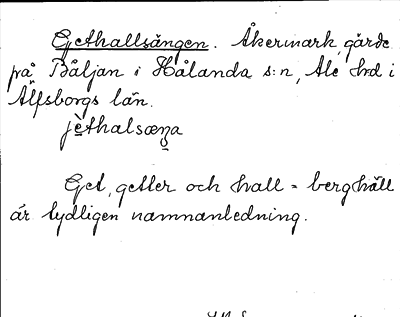 Gethallsängen. Åkermark, gärde
på Båljan i Hålanda s:n, Ale hrd i
Älfsborgs län.
jèthalsæŋa
Get, getter och hall = berghäll
är tydligen namnanledning.